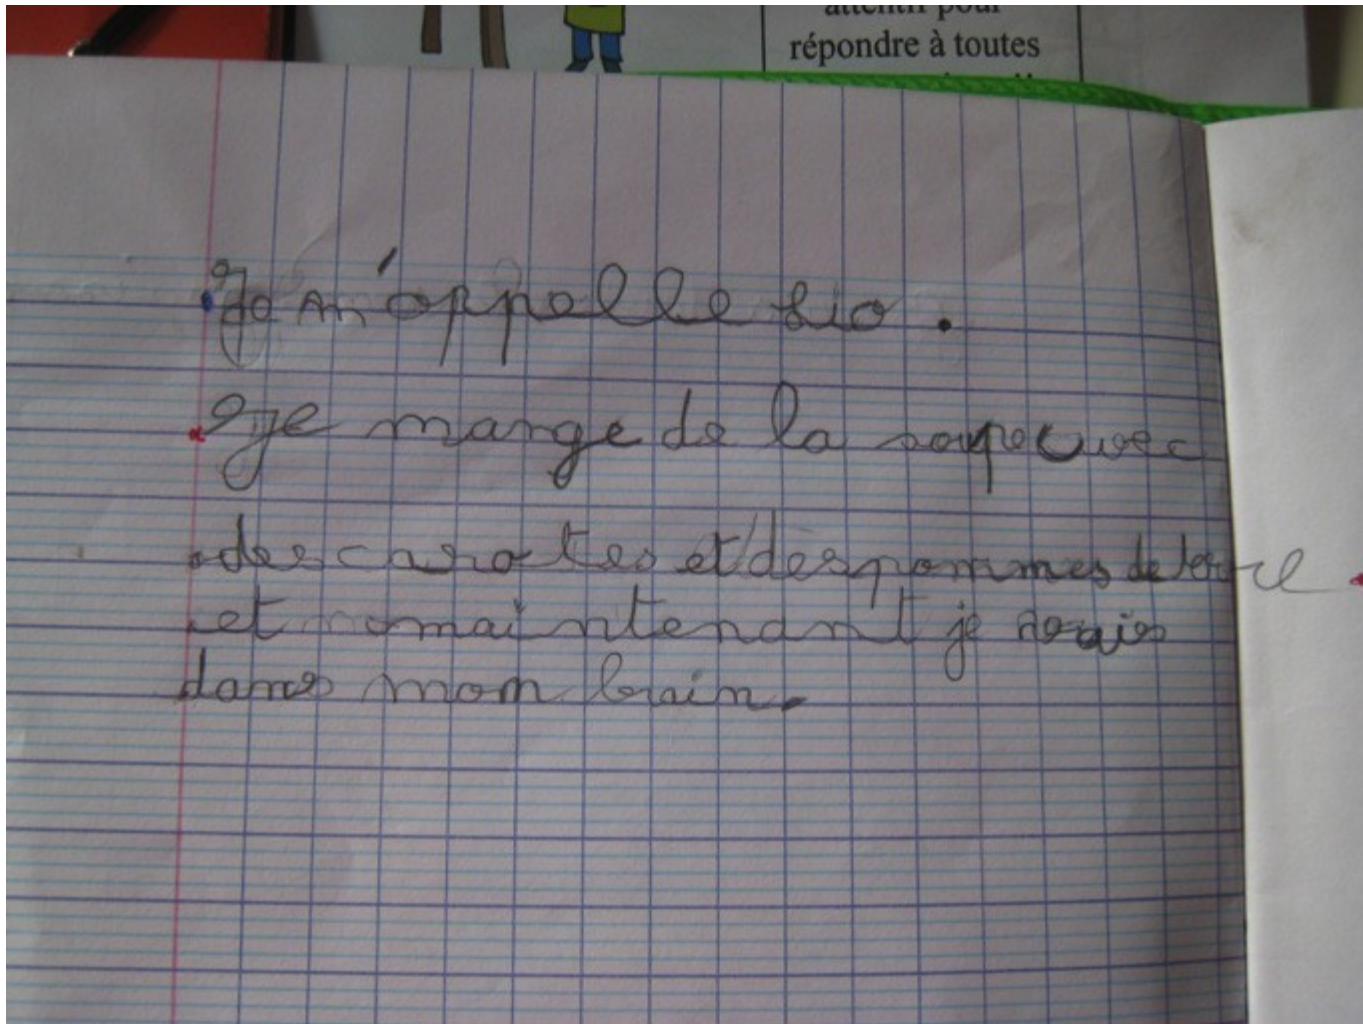 attentif pour
répondre à toutes
Je m'appelle Lio.
Je mange de la soupe avec
des carotes et des pommes de terre
et maintenant je serais
dans mon brain.